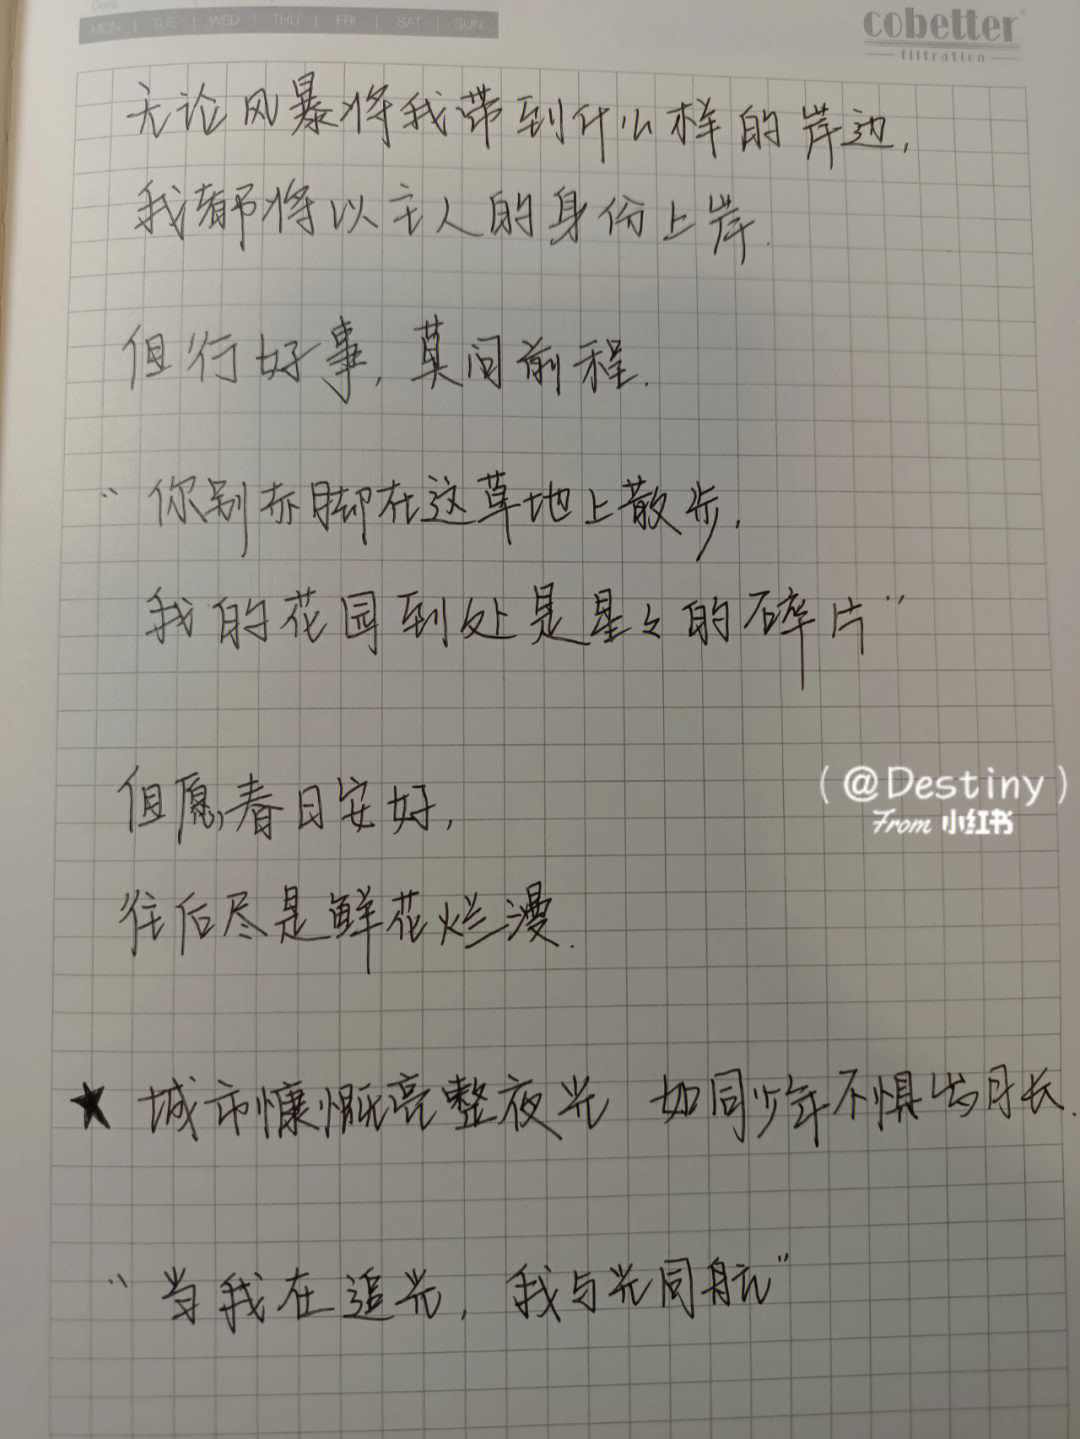 Date:
MON TUE WED THU FRI SAT SUN
cobetter
filtration
无论风暴将我带到什么样的岸边,
我都将以主人的身份上岸.
但行好事, 莫问前程.
“你别赤脚在这草地上散步,
我的花园到处是星々的碎片”
(@Destiny)
From 小红书
但愿春日安好,
往后尽是鲜花烂漫.
★ 城市慷慨亮整夜光 如同少年不惧岁月长.
“当我在追光, 我与光同航”